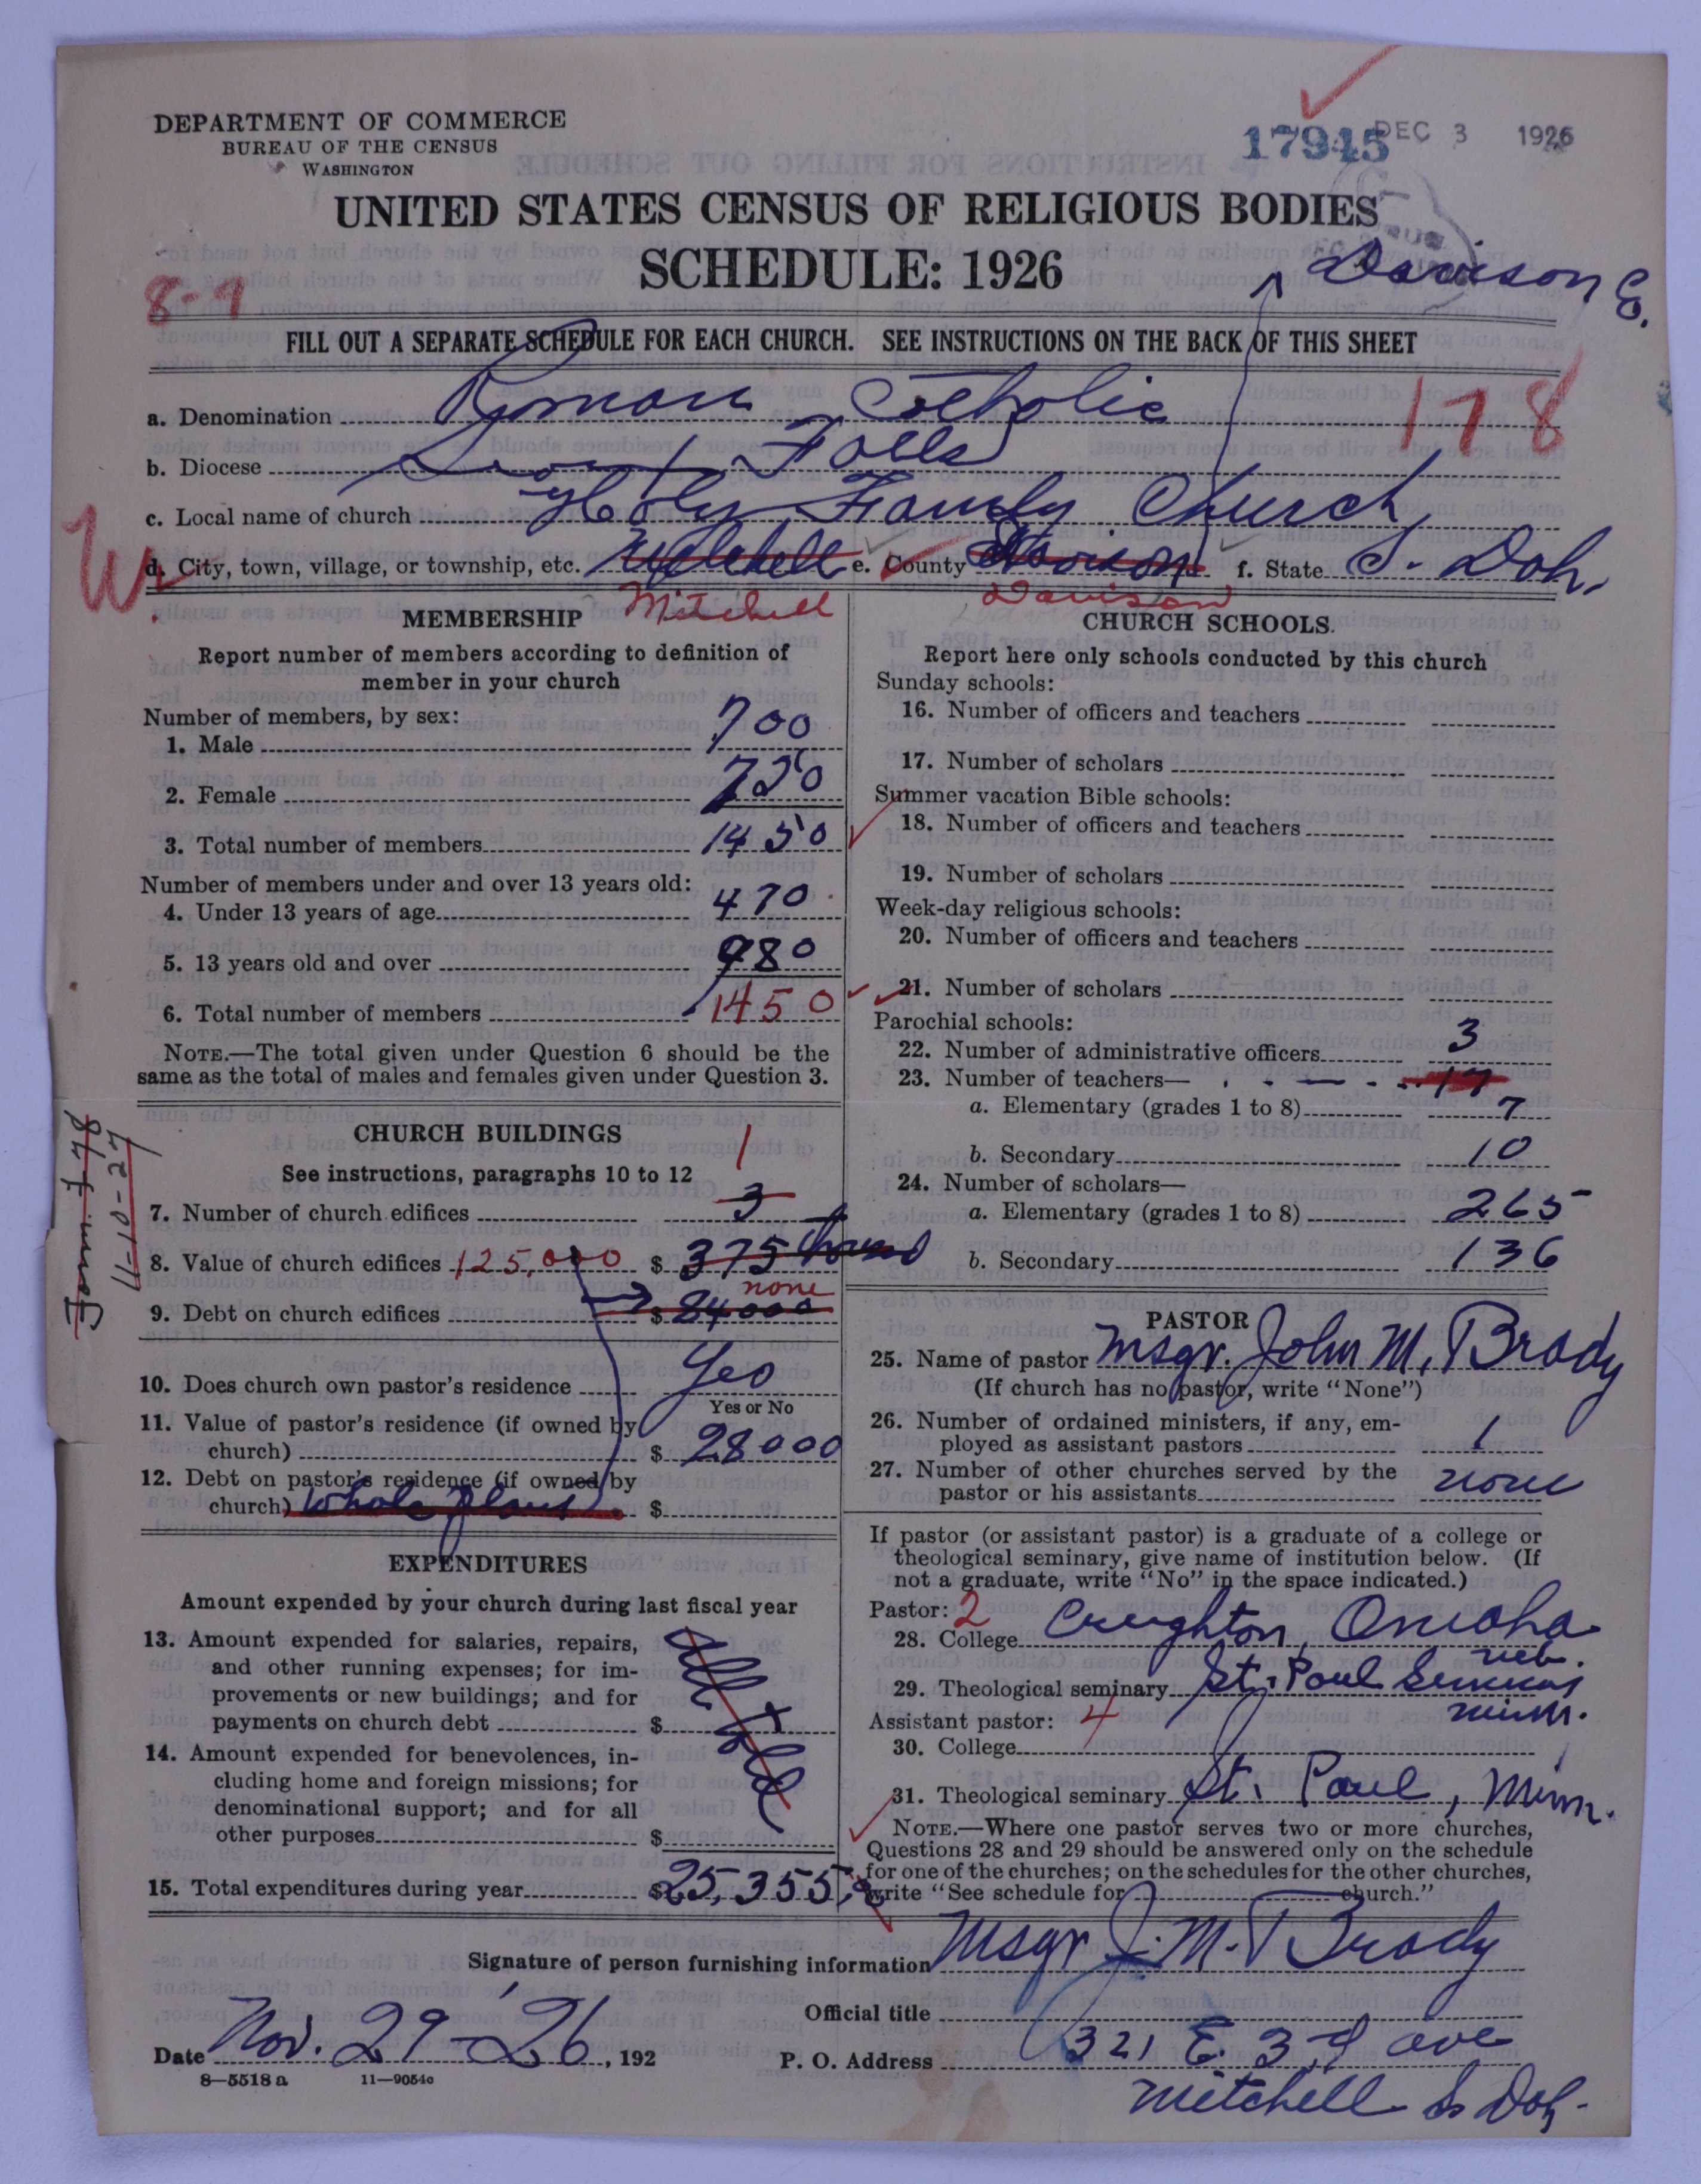 DEPARTMENT OF COMMERCE
BUREAU OF THE CENSUS
WASHINGTON
17945
DEC 3 1926
UNITED STATES CENSUS OF RELIGIOUS BODIES
SCHEDULE: 1926
Davison Co.
8-9
FILL OUT A SEPARATE SCHEDULE FOR EACH CHURCH. SEE INSTRUCTIONS ON THE BACK OF THIS SHEET
178
a. Denomination Roman Catholic
b. Diocese Sioux Falls
c. Local name of church Holy Family Church
W
d. City, town, village, or township, etc. Mitchell e. County Davison f. State S. Dak.
Mitchell Davison
MEMBERSHIP
Report number of members according to definition of
member in your church
Number of members, by sex:
1. Male 700
2. Female 750
3. Total number of members 1450
Number of members under and over 13 years old:
4. Under 13 years of age 470
5. 13 years old and over 980
6. Total number of members 1450
NOTE.—The total given under Question 6 should be the
same as the total of males and females given under Question 3.
CHURCH BUILDINGS
See instructions, paragraphs 10 to 12
1
7. Number of church edifices 3
8. Value of church edifices 125,000 $ 375
none
9. Debt on church edifices $ 84000
10. Does church own pastor's residence Yes
Yes or No
11. Value of pastor's residence (if owned by
church) $ 28000
12. Debt on pastor's residence (if owned by
church) whole plant $
Form 48
11-10-27
EXPENDITURES
Amount expended by your church during last fiscal year
13. Amount expended for salaries, repairs,
and other running expenses; for im-
provements or new buildings; and for
payments on church debt $
14. Amount expended for benevolences, in-
cluding home and foreign missions; for
denominational support; and for all
other purposes $
15. Total expenditures during year $25,355
CHURCH SCHOOLS.
Report here only schools conducted by this church
Sunday schools:
16. Number of officers and teachers
17. Number of scholars
Summer vacation Bible schools:
18. Number of officers and teachers
19. Number of scholars
Week-day religious schools:
20. Number of officers and teachers
21. Number of scholars
Parochial schools:
22. Number of administrative officers 3
23. Number of teachers— 17
a. Elementary (grades 1 to 8) 7
b. Secondary 10
24. Number of scholars—
a. Elementary (grades 1 to 8) 265
b. Secondary 136
PASTOR
25. Name of pastor Msgr. John M. Brady
(If church has no pastor, write "None")
26. Number of ordained ministers, if any, em-
ployed as assistant pastors 1
27. Number of other churches served by the
pastor or his assistants none
If pastor (or assistant pastor) is a graduate of a college or
theological seminary, give name of institution below. (If
not a graduate, write "No" in the space indicated.)
Pastor: 2
28. College Creighton, Omaha
Neb.
29. Theological seminary St. Paul Seminary
Minn.
Assistant pastor: 4
30. College
31. Theological seminary St. Paul, Minn.
NOTE.—Where one pastor serves two or more churches,
Questions 28 and 29 should be answered only on the schedule
for one of the churches; on the schedules for the other churches,
write "See schedule for church."
Signature of person furnishing information Msgr J. M. Brady
Official title
Date Nov. 29 - '26, 192
P. O. Address 321 E. 3rd ave
Mitchell So Dak.
8—5518 a 11—9054c